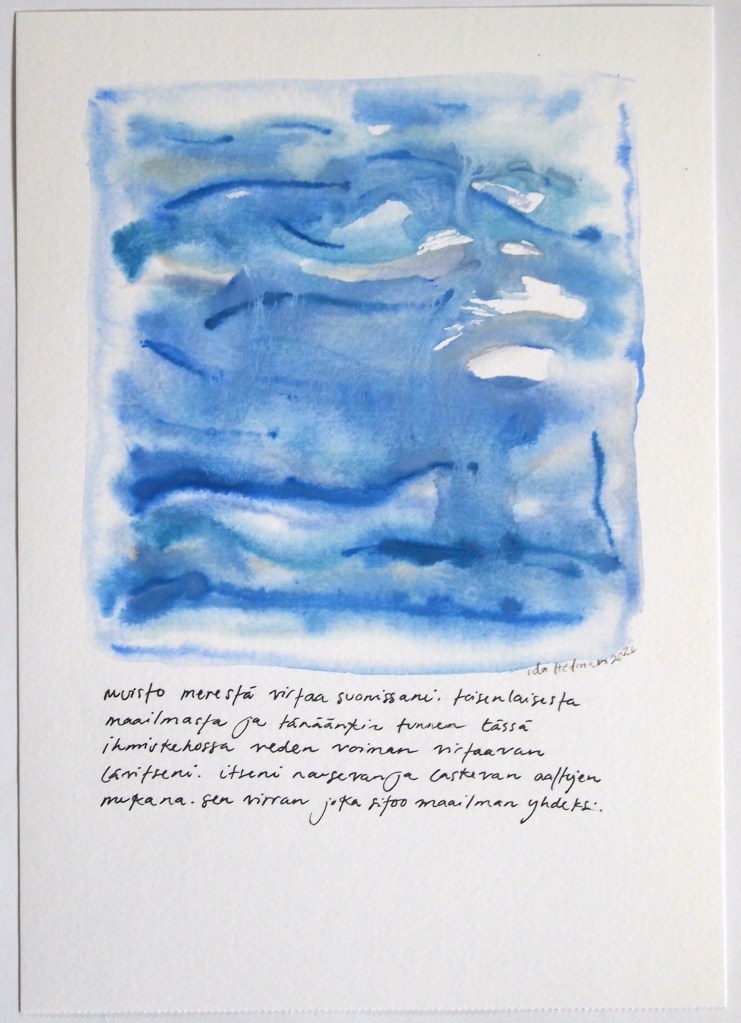 ida Hedman 2026
muisto merestä virtaa suonissani. toisenlaisesta
maailmasta ja tänäänkin tunnen tässä
ihmiskehossa veden voiman virtaavan
lävitseni. itseni nousevan ja laskevan aaltojen
mukana. sen virran joka sitoo maailman yhdeksi.